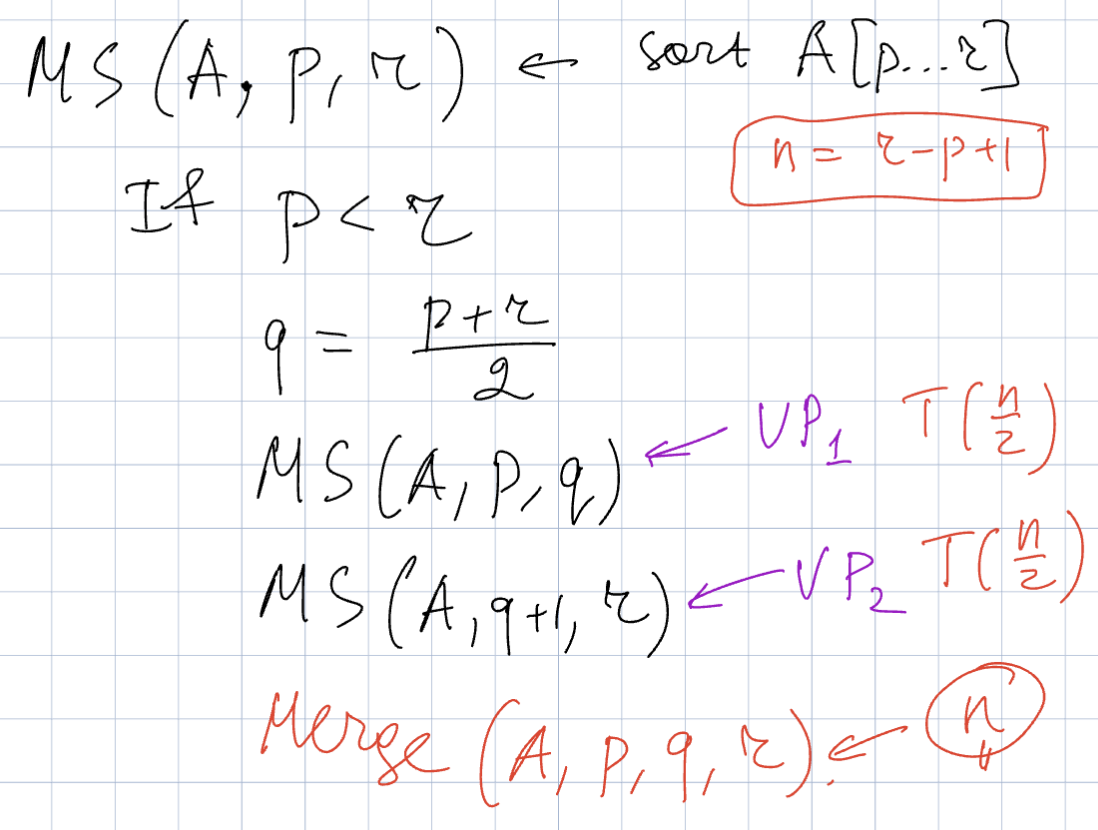 MS(A, p, r) ← sort A[p...r]
n = r-p+1
If p < r
q = (p+r)/2
MS(A, p, q) ← VP₁ T(n/2)
MS(A, q+1, r) ← VP₂ T(n/2)
Merge (A, p, q, r) ← n